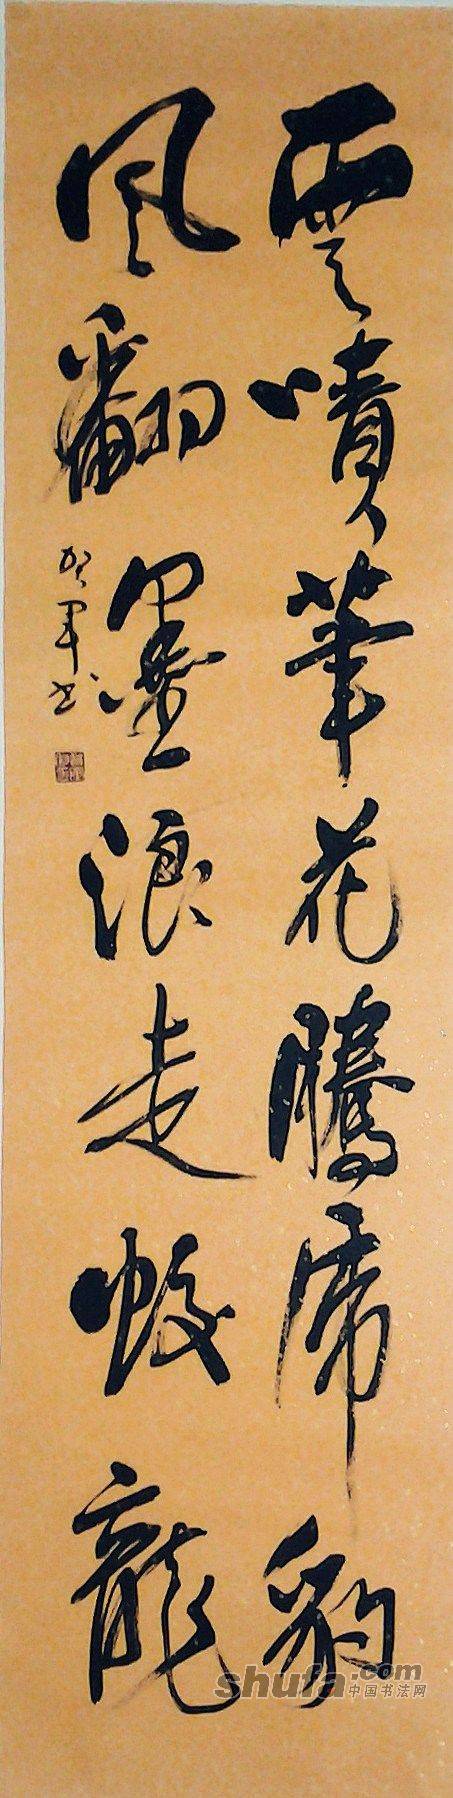 雲噴筆花騰虎豹
風翻墨浪走蛟龍
賀軍书
shufa.com
中国书法网